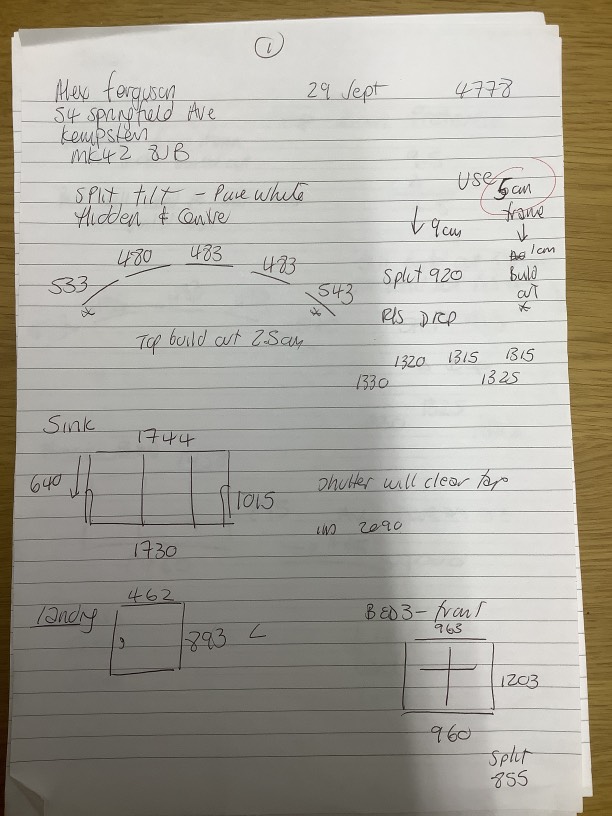 1
Alex Ferguson 29 Sept 4778
54 Springfield Ave
Kempsten
MK42 8JB
Split tilt - Pure White
Hidden & Centre
USE 5cm
frame
↓ 9cm
↓
1cm
Build
out
*
480 483 483
533 543
* *
Split 920
R/S Drop
Top build out 25cm
1320 1315 1315
1330 1325
Sink
1744
640
1015
1730
Shutter will clear tap
2090
Landry
462
893 L
BED3 - front
963
1203
960
Split
855